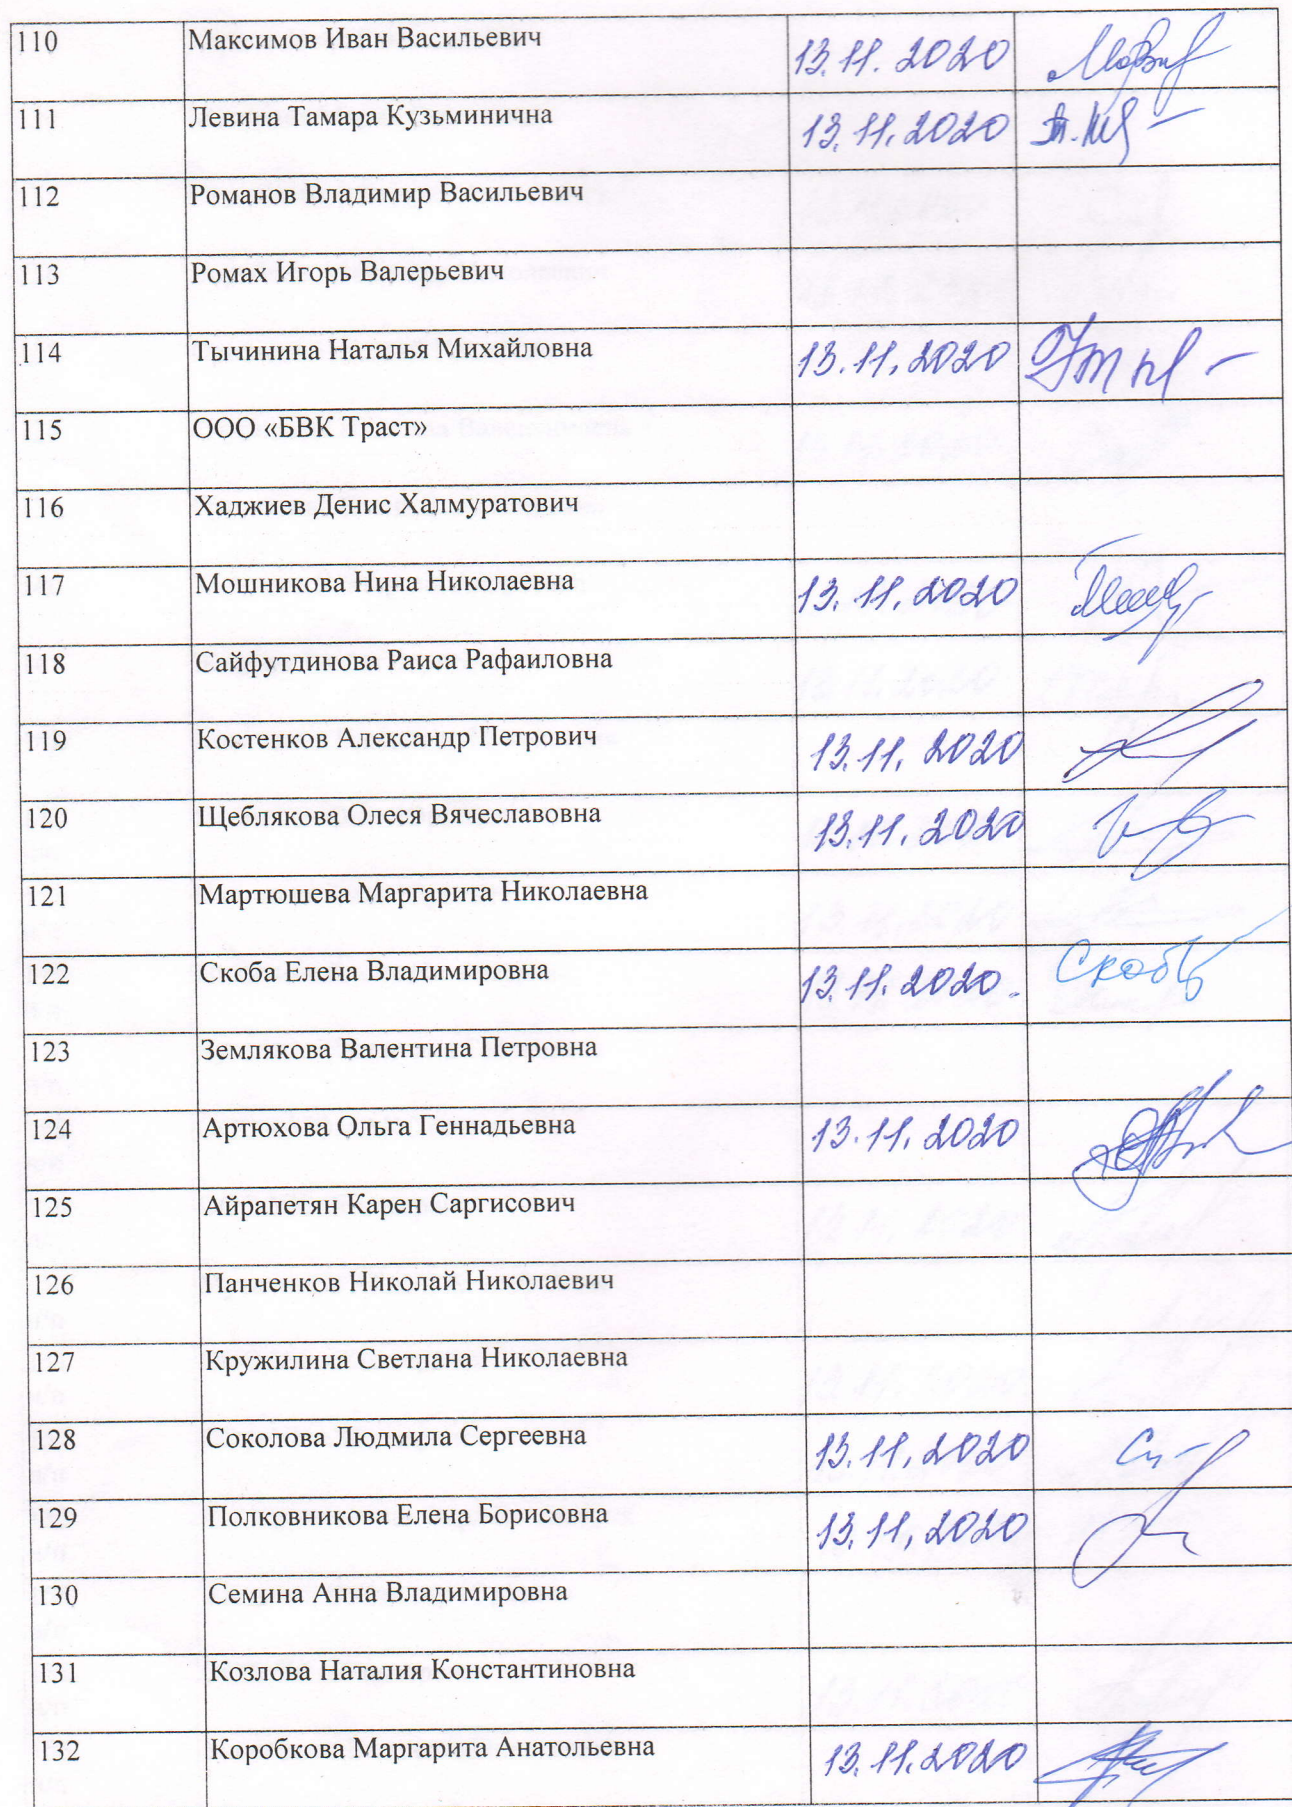 110 Максимов Иван Васильевич 13.11.2020
111 Левина Тамара Кузьминична 13.11.2020
112 Романов Владимир Васильевич
113 Ромах Игорь Валерьевич
114 Тычинина Наталья Михайловна 13.11.2020
115 ООО «БВК Траст»
116 Хаджиев Денис Халмуратович
117 Мошникова Нина Николаевна 13.11.2020
118 Сайфутдинова Раиса Рафаиловна
119 Костенков Александр Петрович 13.11.2020
120 Щеблякова Олеся Вячеславовна 13.11.2020
121 Мартюшева Маргарита Николаевна
122 Скоба Елена Владимировна 13.11.2020.
123 Землякова Валентина Петровна
124 Артюхова Ольга Геннадьевна 13.11.2020
125 Айрапетян Карен Саргисович
126 Панченков Николай Николаевич
127 Кружилина Светлана Николаевна
128 Соколова Людмила Сергеевна 13.11.2020
129 Полковникова Елена Борисовна 13.11.2020
130 Семина Анна Владимировна
131 Козлова Наталия Константиновна
132 Коробкова Маргарита Анатольевна 13.11.2020